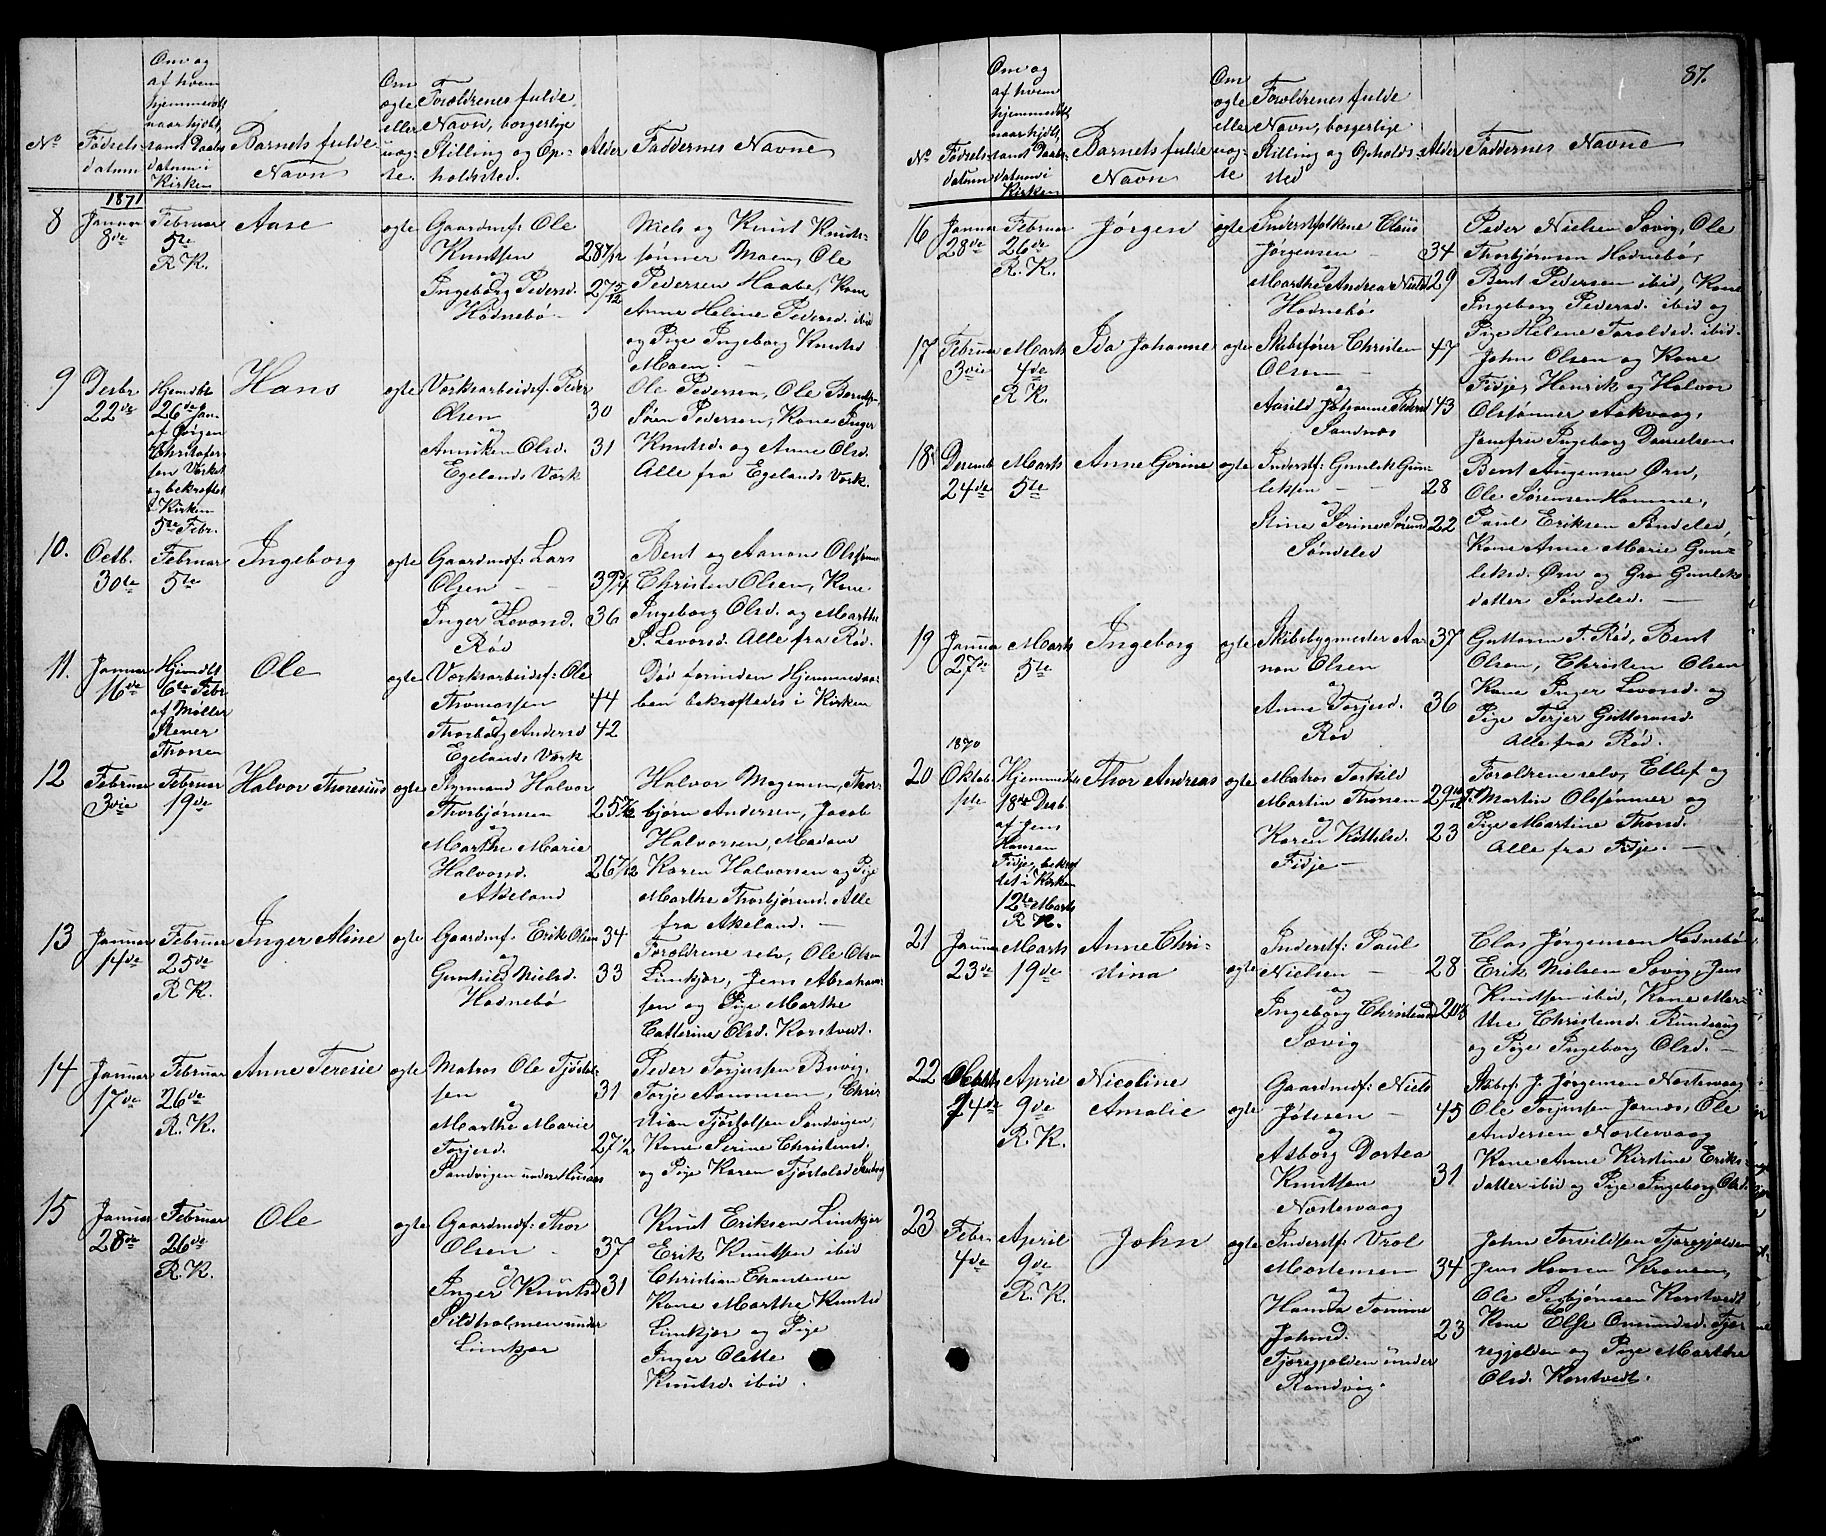 No
Fødsels-
datum
Om og
af hvem
hjemmedøbt,
naar hjdbt,
samt Daabs
datum i
Kirken
Barnets fulde
Navn
Om
ægte
eller
uæg-
te.
Forældrenes fulde
Navn, borgerlige
Stilling og Op-
holdsted.
Alder
Faddernes Navne
1871
8
Januar
8de
Februar
5te
R. K.
Aase
ægte
Gaardmf: Ole
Knudsen
og
Ingeborg Pedersd.
Hødnebø
28 7/12
27 5/12
Niels og Knut Knuts-
sønner Moen, Ole
Pedersen Haabe, Kone
Anne Heline Pedersd. ibid
og Pige Ingeborg Knutsd
Moen.
9
Decbr
22de
Hjemdbt
26de Jan.
af Jørgen
Christofer
sen Værket
og bekræftet
i Kirken
5te Febr.
Hans
ægte
Værksarbeidsf: Peder
Olsen
og
Anniken Olsd.
Egelands Værk
30
31
Ole Pedersen, Ole Berntsen
Søren Pedersen, Kone Inger
Knutsd. og Anne Olsd.
Alle fra Egelands Værk.
10.
Octb.
30te
Februar
5te
Ingeborg
ægte
Gaardmf: Lars
Olsen
og
Inger Levorsd.
Rød
39 3/4
36
Bent og Aanon Olsønner
Christen Olsen, Kone
Ingeborg Olsd. og Marthe
S. Levorsd. Alle fra Rød.
11.
Januar
16de
Hjemdbt
6te Febr
af Møller
Stener
Thorsen
Ole
ægte
Værksarbeidsf: Ole
Thomassen
og
Thorborg Andersd
Egelands Værk
44
42
Død forinden Hjemmedaa-
ben bekræftedes i Kirken
12
Februar
3die
Februar
19de
Halvor Thoresius
ægte
Styrmand Halvor
Thorbjørnsen
og
Marthe Marie
Halvorsd.
Akeland
25 7/12
26 7/12
Halvor Mogensen, Thor-
bjørn Andersen, Jacob
Halvorsen, Madam
Karen Halvorsen og Pige
Marthe Thorbjørnsd. Alle
fra Akeland.
13
Januar
14de
Februar
25de
R. K.
Inger Aline
ægte
Gaardmf: Erik Olsen
og
Gunhild Nielsd.
Hødnebø
34
33
Forældrene selv, Ole Olsen
Limkjær, Jens Abraham-
sen og Pige Marthe
Catterine Olsd. Korstvedt.
14
Januar
17de
Februar
26de
R. K.
Anne Teresie
ægte
Matros Ole Tjøstol-
sen
og
Marthe Marie
Torjersd.
Sandvigen under Husaas
31
27 1/2
Peder Torjussen Buvig,
Torje Aanonsen, Chri-
stian Tjøstolsen Sandvigen,
Kone Serine Christensd.
og Pige Karen Tjøstolsd
15
Januar
28de
Februar
26de
R. K.
Ole
ægte
Gaardmf: Thor
Olsen
og
Inger Knutsd
Sildholmen under
Limkjær
37
31
Knut Eriksen Limkjær
Erik Knutsen ibid
Christian Christensen
Kone Marthe Knutsd
Limkjær og Pige
Inger Olette
Knutsd. ibid.
87.
No
Fødsels-
datum
Om og
af hvem
hjemmedøbt
naar hjdbt,
samt Daabs-
datum i
Kirken
Barnets fulde
Navn
Om
ægte
eller
uæg-
te
Forældrenes fulde
Navn, borgerlige
Stilling og Opholds-
sted
Alder
Faddernes Navne
16
Januar
28de
Februar
26de
R. K.
Jørgen
ægte
Inderstfolkene Claus
Jørgensen
og
Marthe Andrea Nielsd
Hødnebø
34
29
Peder Nielsen Søvig, Ole
Thorbjørnsen Hødnebø,
Bent Pedersen ibid, Kone
Ingeborg Pedersd. ibid og
Pige Helene Taraldsd. ibid.
17
Februar
3die
Marts
4de
R. K.
Ida Johanne
ægte
Skibsfører Christen
Olsen
og
Aasild Johanne Pedersd
Sandnæs
47
43
John Olsen og Kone
Fidje, Henrik og Halvor
Olsønner Aakvaag,
Jomfru Ingeborg Danielsen
18
Decemb
24de
Marts
5te
Anne Gorine
ægte
Inderstf: Gunlek Gun-
leksen
og
Stine Serine Sørensd
Søndeled
28
22
Bent Augensen Ørn,
Ole Sørensen Homme,
Paul Eriksen Søndeled
Kone Anne Marie Gun-
leksd. Ørn og Gro Gunleks-
datter Søndeled.
19
Januar
27de
Marts
5te
Ingeborg
ægte
Skibsbygmester Aa-
non Olsen
og
Anne Torjersd.
Rød
37
36
Guttorm T. Rød, Bent
Olsen, Christen Olsen
Kone Inger Levorsd. og
Pige Terjer Guttormsd.
Alle fra Rød.
1870
20
Oktob
1ste
Hjemmedbt
18de Decb.
af Jens
Hansen
Fidje, bekræf
tet i Kirken
12te Marts
R. K.
Thor Andreas
ægte
Matros Torkild
Martin Thorsen
og
Karen Kittilsd.
Fidje
29
23
Forældrene selv, Ellef og
Martin Olsønner og
Pige Martine Thorsd.
Alle fra Fidje.
21
Januar
23de
Marts
19de
Anne Chri-
stina
ægte
Inderstf: Paul
Nielsen
og
Ingeborg Christensd
Søvig
28
20
Clas Jørgensen Hødnebø
Erik Nielsen Søvig, Jens
Knudsen ibid, Kone Mar-
the Christensd.
og Pige Ingeborg Olsd.
22
Octob
24de
April
9de
R. K.
Nicoline
Amalie
ægte
Gaardmf: Niels
Jølesen
og
Asborg Dortea
Knutsen
Næstevaag
45
31
Skibsf. J. Jørgensen Næstevaag
Ole Torjussen Jernæs, Ole
Andersen Næstevaag
Kone Anne Kirstine Eriks-
datter ibid og Pige Ingeborg Olsd.
23
Febr
4de
April
9de
R. K.
John
ægte
Inderstf: Vrol
Mortensen
og
Hanna Tomine
Johnsd.
Tjæregjølden under
Randvig.
34
23
John Torvildsen Tjæregjølden
Jens Hansen Kranen,
Ole Asbjørnsen Korstvedt
Kone Else Omundsd. Tjæ-
regjølden og Pige Marthe
Olsd. Korstvedt.